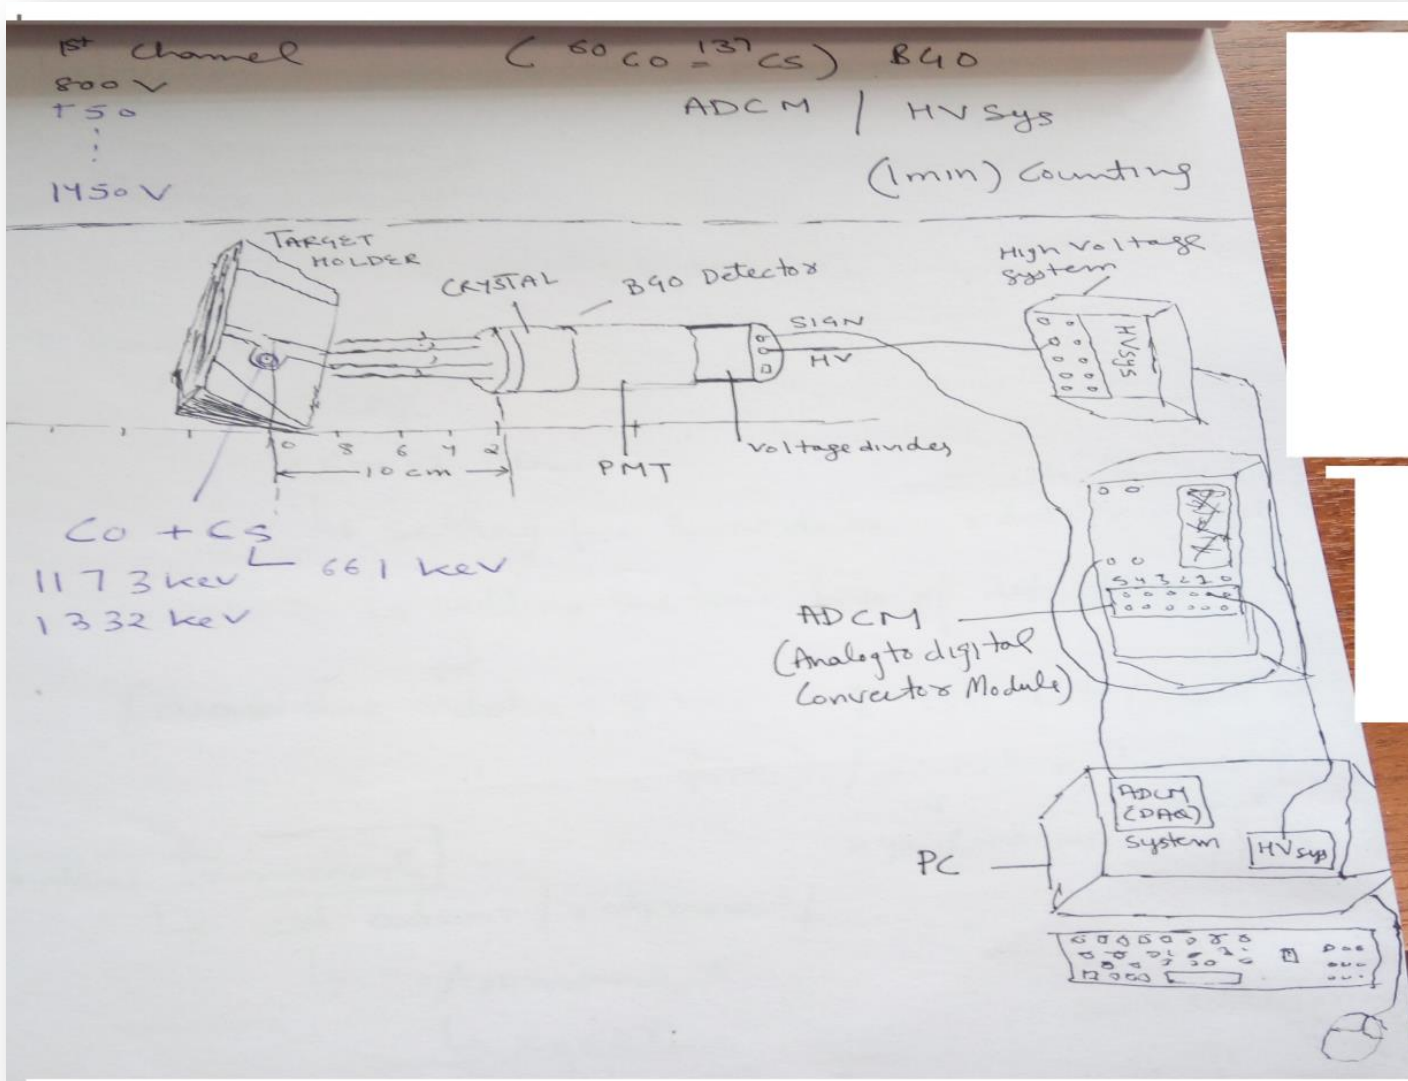 1st Channel
( 60 Co = 137 Cs ) BGO
800 V
+50
ADCM / HV Sys
1450 V
(1min) Counting
TARGET
HOLDER
CRYSTAL
BGO Detector
High Voltage
System
SIGN
HV
HVSys
0 8 6 4 2
10 cm
PMT
Voltage divides
Co + Cs
1173 keV
661 keV
1332 keV
5 4 3 2 1 0
ADCM
(Analog to digital
Convertor Module)
ADCM
(DAQ)
System
HVSys
PC